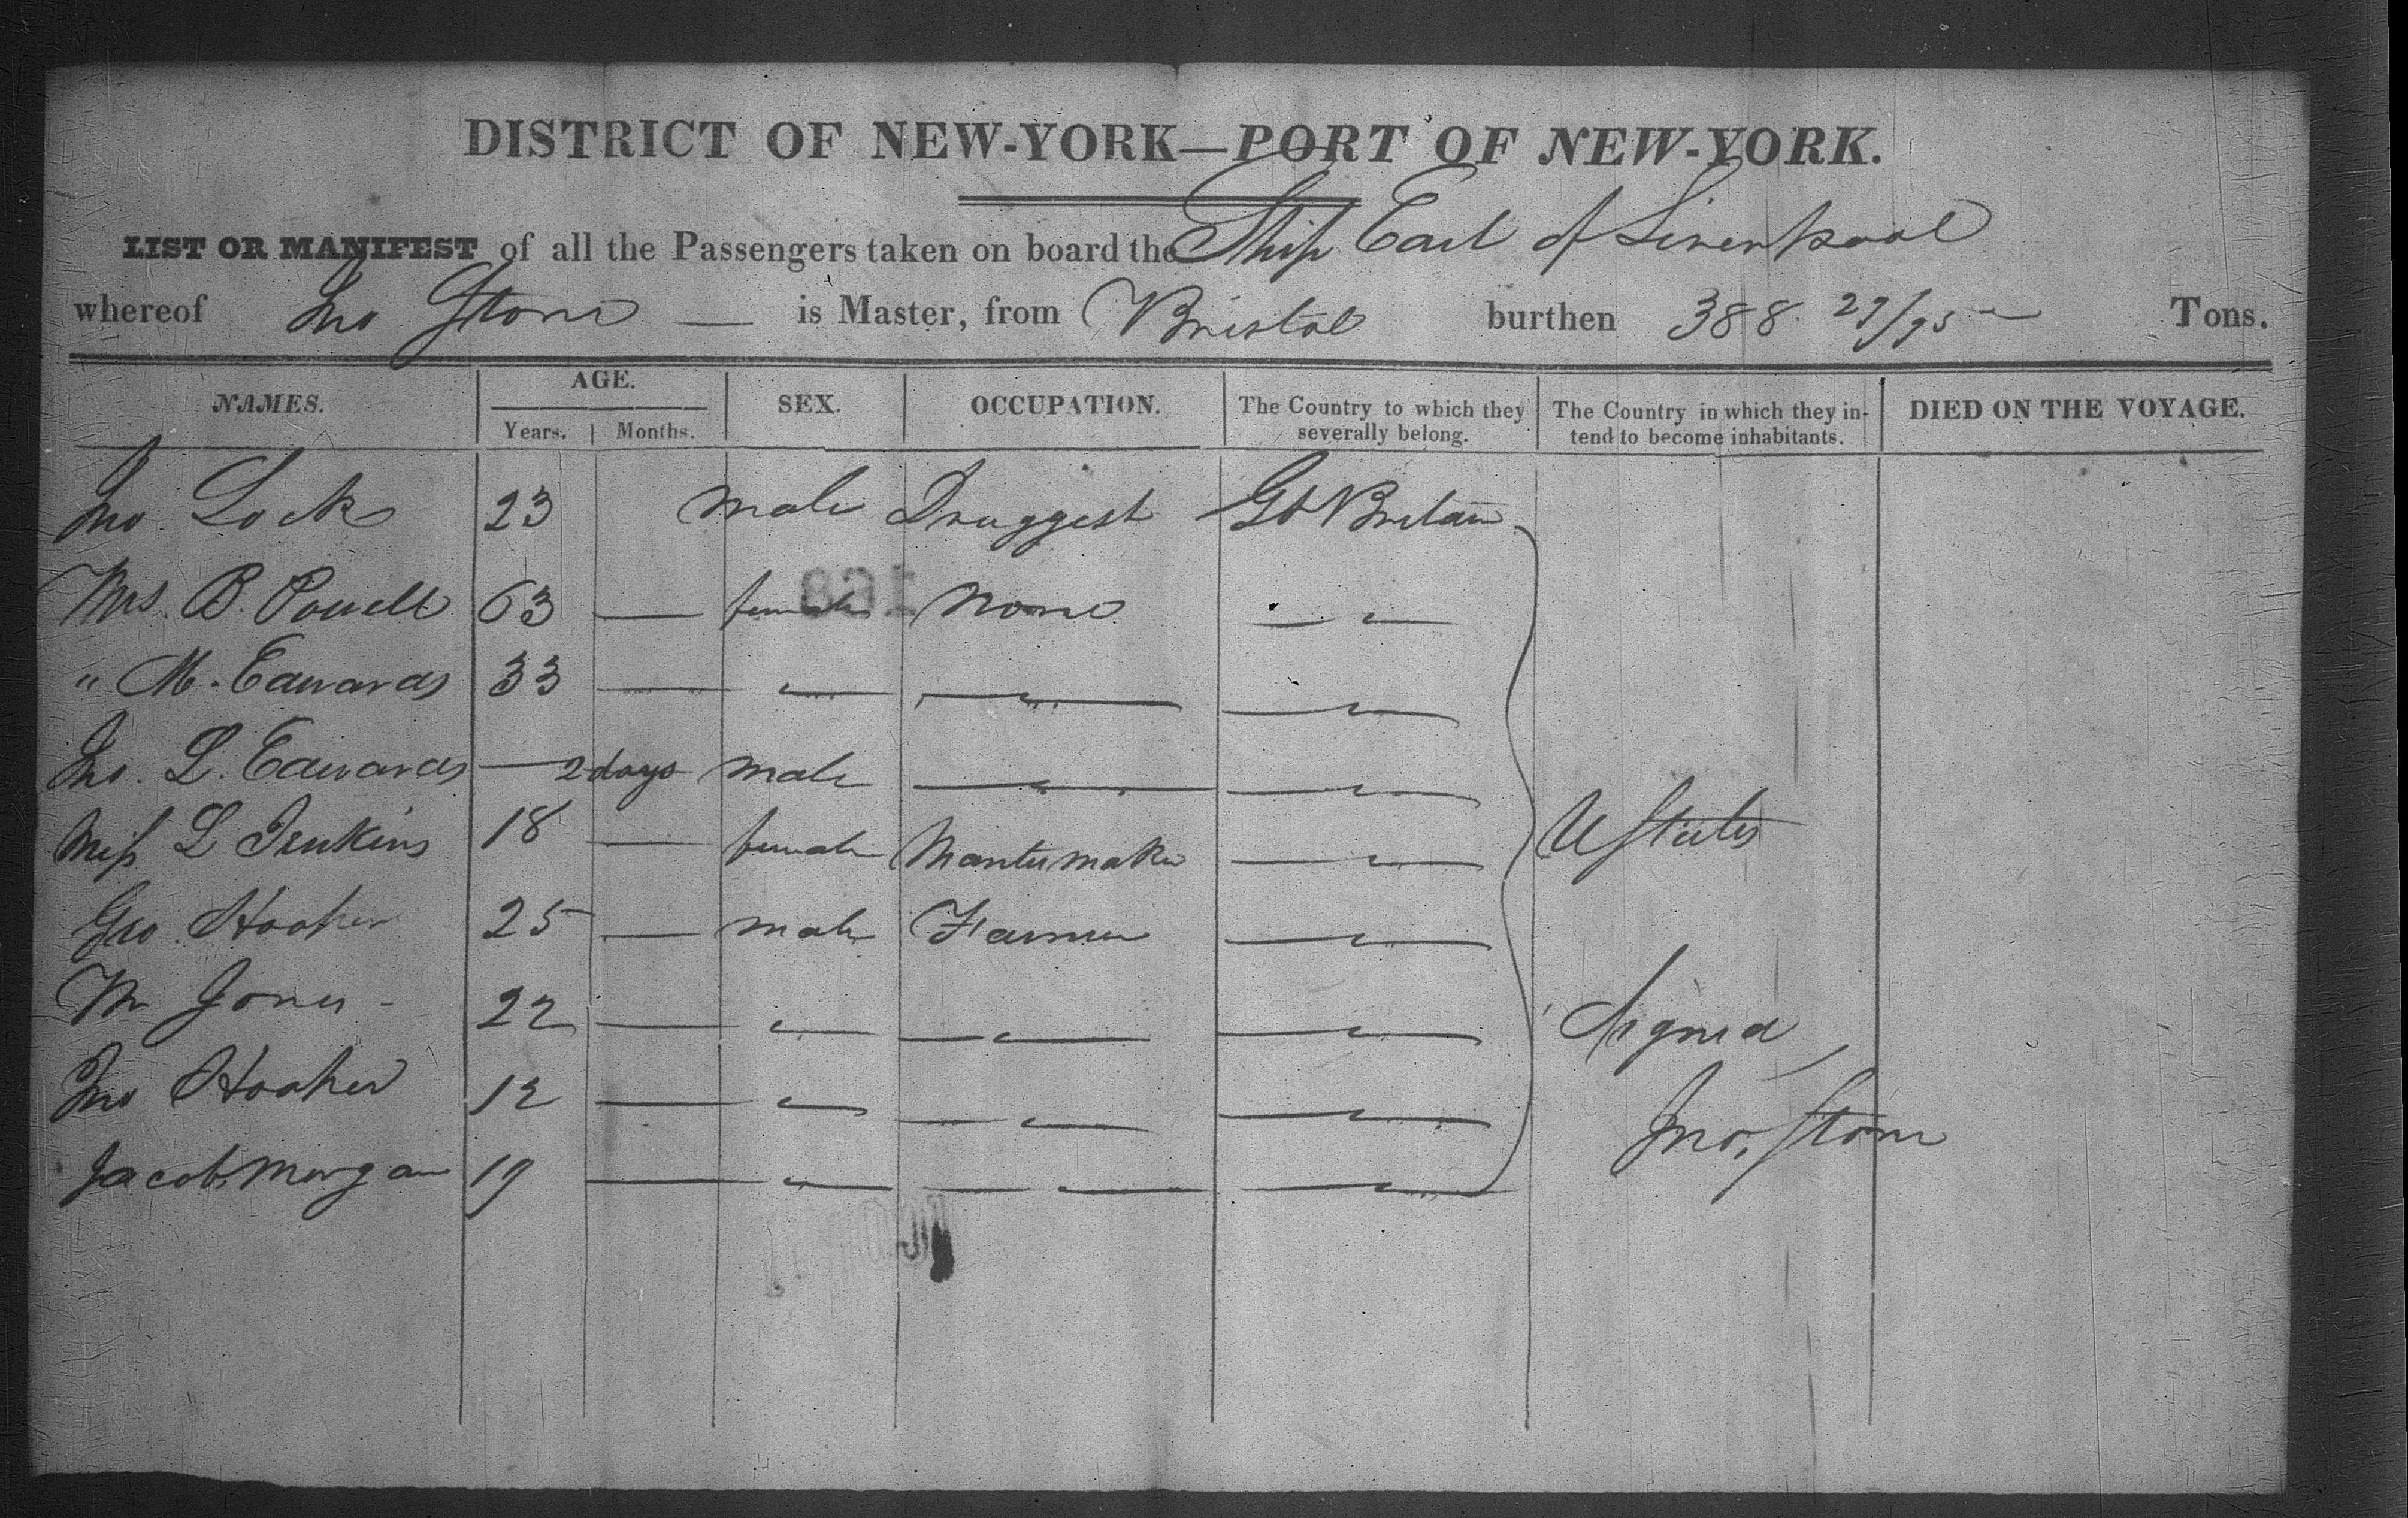 DISTRICT OF NEW-YORK—PORT OF NEW-YORK.
LIST OR MANIFEST of all the Passengers taken on board the Ship Earl of Liverpool
whereof Jno Stone — is Master, from Bristol burthen 388 /95 Tons.
NAMES. AGE. SEX. OCCUPATION. The Country to which they severally belong. The Country in which they intend to become inhabitants. DIED ON THE VOYAGE.
Years. Months.
Jno Lock 23 male Druggest Gt Britain
Mrs. B. Powell 63 — female none — " —
" M. Edwards 33 — " — — " — — " —
Jno. L. Edwards — 2 days male — " — — " —
Miss L Jenkins 18 — female Mantumaker — " — UStates
Geo Hooker 25 — male Farmer — " —
M Jones 22 — " — — " — — " — Signed
Jno Hooker 12 — " — — " — — " — Jno, Stone
Jacob Morgan 19 — " — — " — — " —